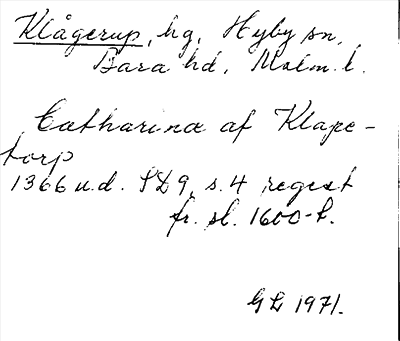 Klågerup, hg, Hyby sn,
Bara hd, Malm. l.
Catharina af Klape-
torp
1366 u.d. SD 9, s. 4 regest
fr. sl. 1600-t.
GL 1971.